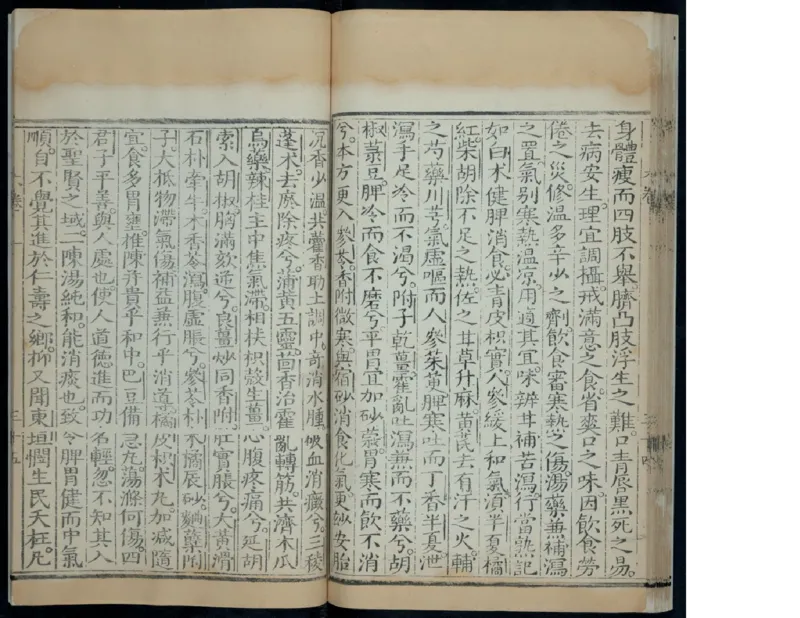 身體瘦而四肢不舉臍凸肢浮生之難口青唇黑死之易
去病安生理宜調攝戒滿意之食省爽口之味因飲食勞
倦之災修溫多辛少之劑飲食審寒熱之傷湯藥兼補瀉
之置氣別寒熱溫涼用適其宜味辨甘補苦瀉行當熟記
如白木健脾消食必青皮枳實人參緩上和氣須半夏橘
紅柴胡除不足之熱佐之甘草升麻黃芪去有汗之火輔
之芍藥川芎氣虛嘔而人參茱萸脾寒吐而丁香半夏泄
瀉手足冷而不渴兮附子乾薑霍亂吐瀉兼而不藥兮胡
椒菉豆脾冷而食不磨兮平胃宜加砂蔻胃寒而飲不消
兮本方更入參苓香附微寒與宿砂消食化氣更紗安胎
沉香少溫共藿香助土調中奇消水腫破血消癥兮三稜
蓬朮去瘀除疼兮蒲黃五靈茴香治霍亂轉筋共濟木瓜
烏藥辣桂主中焦氣滯相扶枳殼生薑心腹疼痛兮延胡
索入胡椒胸滿欬逆兮良薑炒同香附肚實脹兮大黃滑
石朴牽牛木香苓瀉腹虛脹兮參苓朴木橘辰砂麯蘗附
子大祗物滯氣傷補益兼行乎消導橘皮枳朮丸加減隨
宜食多胃壅推陳并貴乎和中巴豆備急丸蕩滌何傷四
君子平善與人處也使人道德進而功名輕忽不知其入
於聖賢之域二陳湯純和能消痰也致令脾胃健而中氣
順自不覺其進於仁壽之鄉抑又聞東垣憫生民夭枉凡